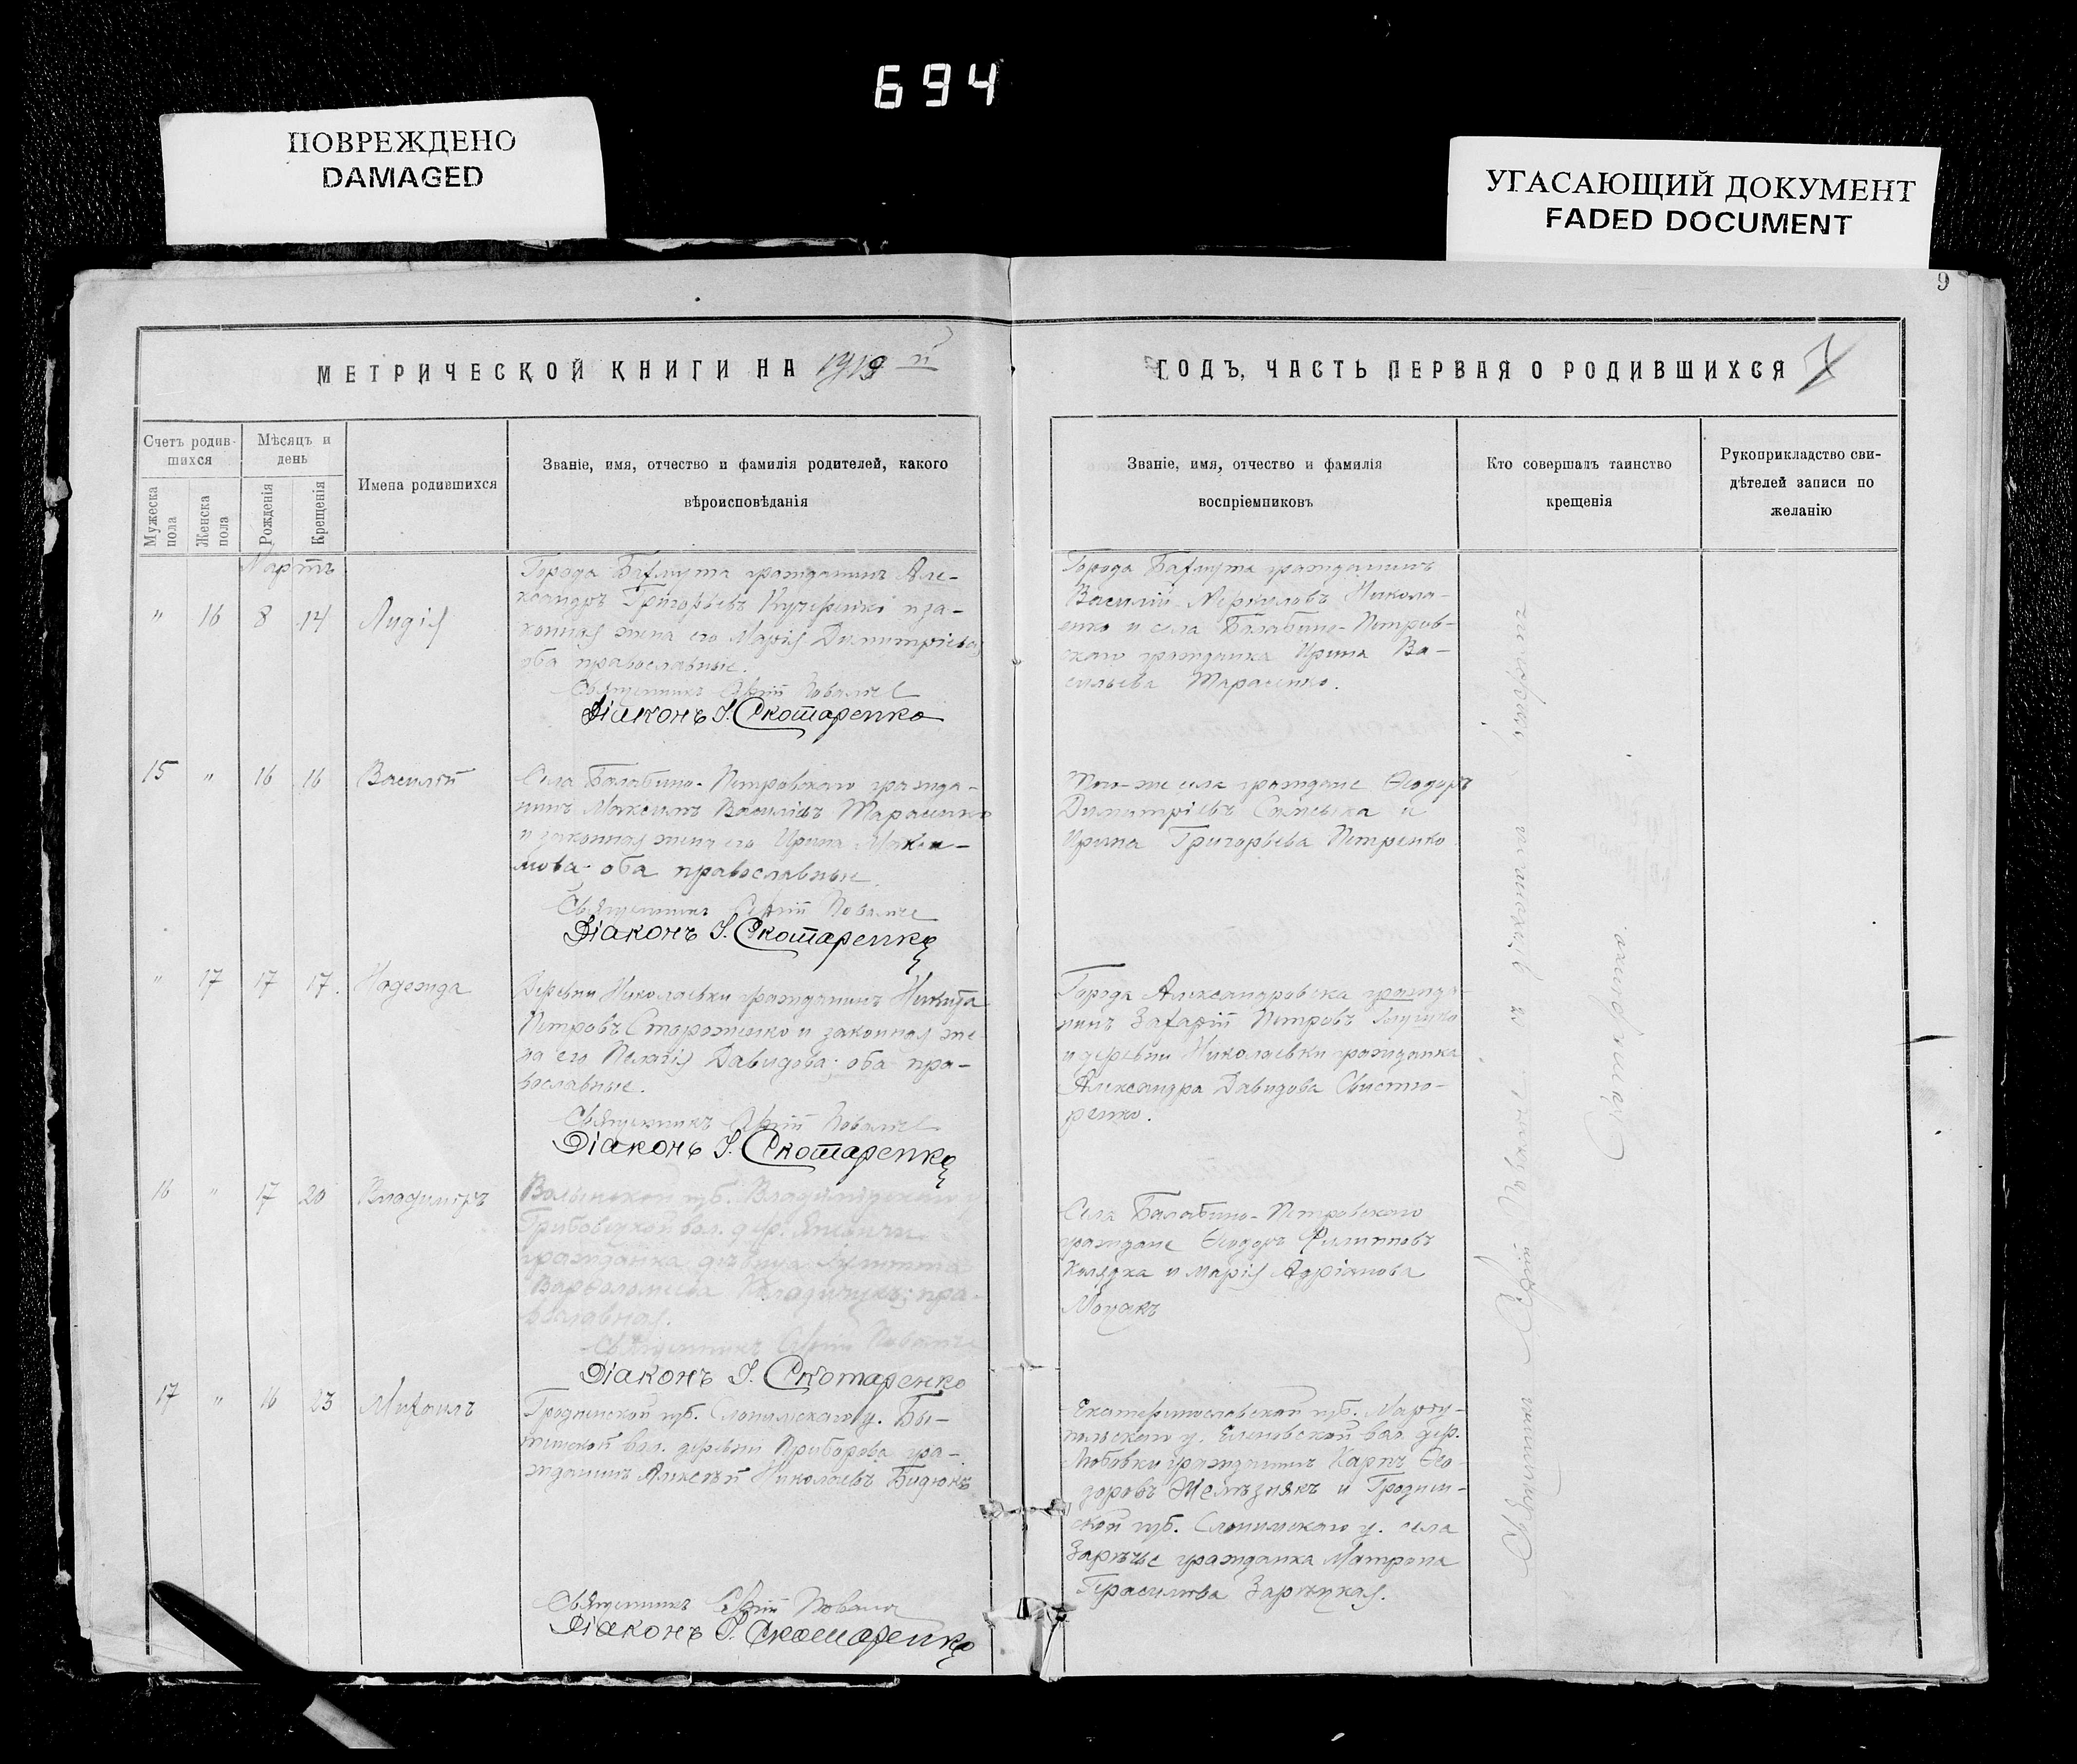 694
ПОВРЕЖДЕНО
DAMAGED
УГАСАЮЩИЙ ДОКУМЕНТ
FADED DOCUMENT
9
МЕТРИЧЕСКОЙ КНИГИ НА 1919 й
ГОДЪ, ЧАСТЬ ПЕРВАЯ О РОДИВШИХСЯ
Счетъ родив-
шихся
Мужеска
пола
Женска
пола
Мѣсяцъ и
день
Рожденія
Крещенія
Имена родившихся
Званіе, имя, отчество и фамилія родителей, какого
вѣроисповѣданія
Званіе, имя, отчество и фамилія
воспріемниковъ
Кто совершалъ таинство
крещенія
Рукоприкладство сви-
дѣтелей записи по
желанію
Мартъ
" 16 8 14 Лидія
Города Бахмута гражданинъ Але-
ксандръ Григорьевъ и за-
конная жена его Марія Димитріева
оба православные.
Священникъ
Діаконъ І. Скотаренко
Города Бахмута гражданинъ
Василій Никола-
енко и села Балабино-Петров-
скаго гражданка Ирина Ва-
сильева Тарасенко.
15 " 16 16 Василій
Села Балабино-Петровскаго гражда-
нинъ Максимъ Васильевъ Тарасенко
и законная жена его Ирина
мова оба православные.
Священникъ
Діаконъ І. Скотаренко
Того-же села граждане Ѳеодоръ
Димитріевъ и
Ирина Григорьева Петренко
" 17 17 17 Надежда
Деревни Николаевки гражданинъ Никита
Петровъ Стороженко и законная же-
на его Пелагія Давидова; оба пра-
вославные.
Священникъ
Діаконъ І. Скотаренко
Города Александровска гражда-
нинъ Захарій Петровъ
и деревни Николаевки гражданка
Александра Давидова
ренко.
16 " 17 20 Владиміръ
Волынской губ. Владимірскаго у.
Грибовецкой вол. дер.
гражданка дѣвица
Варфоломеева пра-
вославная.
Священникъ
Діаконъ І. Скотаренко
Села Балабино-Петровскаго
граждане Ѳеодоръ Филипповъ
Коляда и Марія Адріанова
17 " 16 23 Михаилъ
Гродненской губ. Слонимскаго у. Бы-
тенской вол. деревни Приборова гра-
жданинъ Алексѣй Николаевъ Бидюкъ
Священникъ
Діаконъ І. Скотаренко
Екатеринославской губ. Маріу-
польскаго у. Еленовской вол. дер.
Любовки гражданинъ Карпъ Ѳео-
доровъ Желѣзнякъ и Гроднен-
ской губ. Слонимскаго у. села
Зарѣчье гражданка Матрона
Герасимова Зарѣцкая.
Священникъ